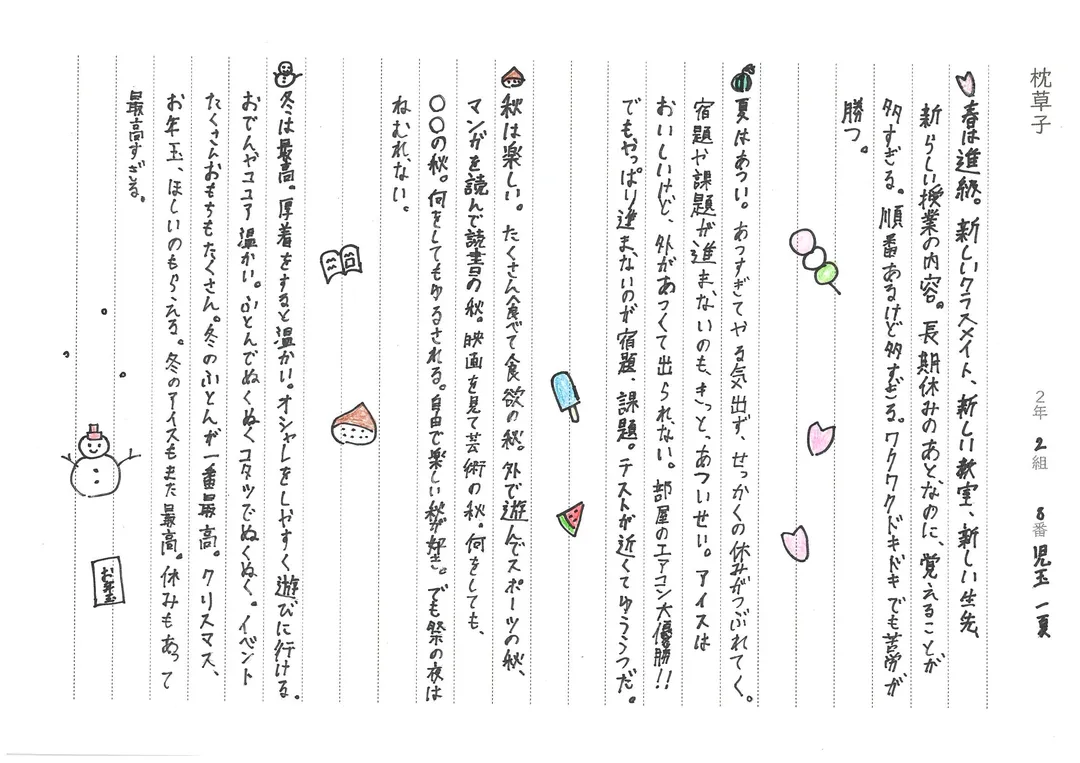 枕草子
2年 2組 8番 児玉 一夏
春は進級。新しいクラスメイト、新しい教室、新しい生先、
新らしい授業の内容。長期休みのあとなのに、覚えることが
多すぎる。順番あるけど多すぎる。ワクワクドキドキでも苦労が
勝つ。
夏はあつい。あつすぎてやる気出ず、せっかくの休みがつぶれてく。
宿題や課題が進まないのも、きっと、あついせい。アイスは
おいしいけど、外があつくて出られない。部屋のエアコン大優勝!!
でもやっぱり進まないのが宿題、課題。テストが近くてゆううつだ。
秋は楽しい。たくさん食べて食欲の秋。外で遊んでスポーツの秋、
マンガを読んで読書の秋。映画を見て芸術の秋。何をしても、
〇〇の秋。何をしてもゆるされる。自由で楽しい秋が好き。でも祭の夜は
ねむれない。
冬は最高。厚着をすると温かい。オシャレをしやすく遊びに行ける。
おでんやココア温かい。ふとんでぬくぬくコタツでぬくぬく。イベント
たくさんおもちもたくさん。冬のふとんが一番最高。クリスマス、
お年玉、ほしいのもらえる。冬のアイスもまた最高。休みもあって
最高すぎる。
お年玉